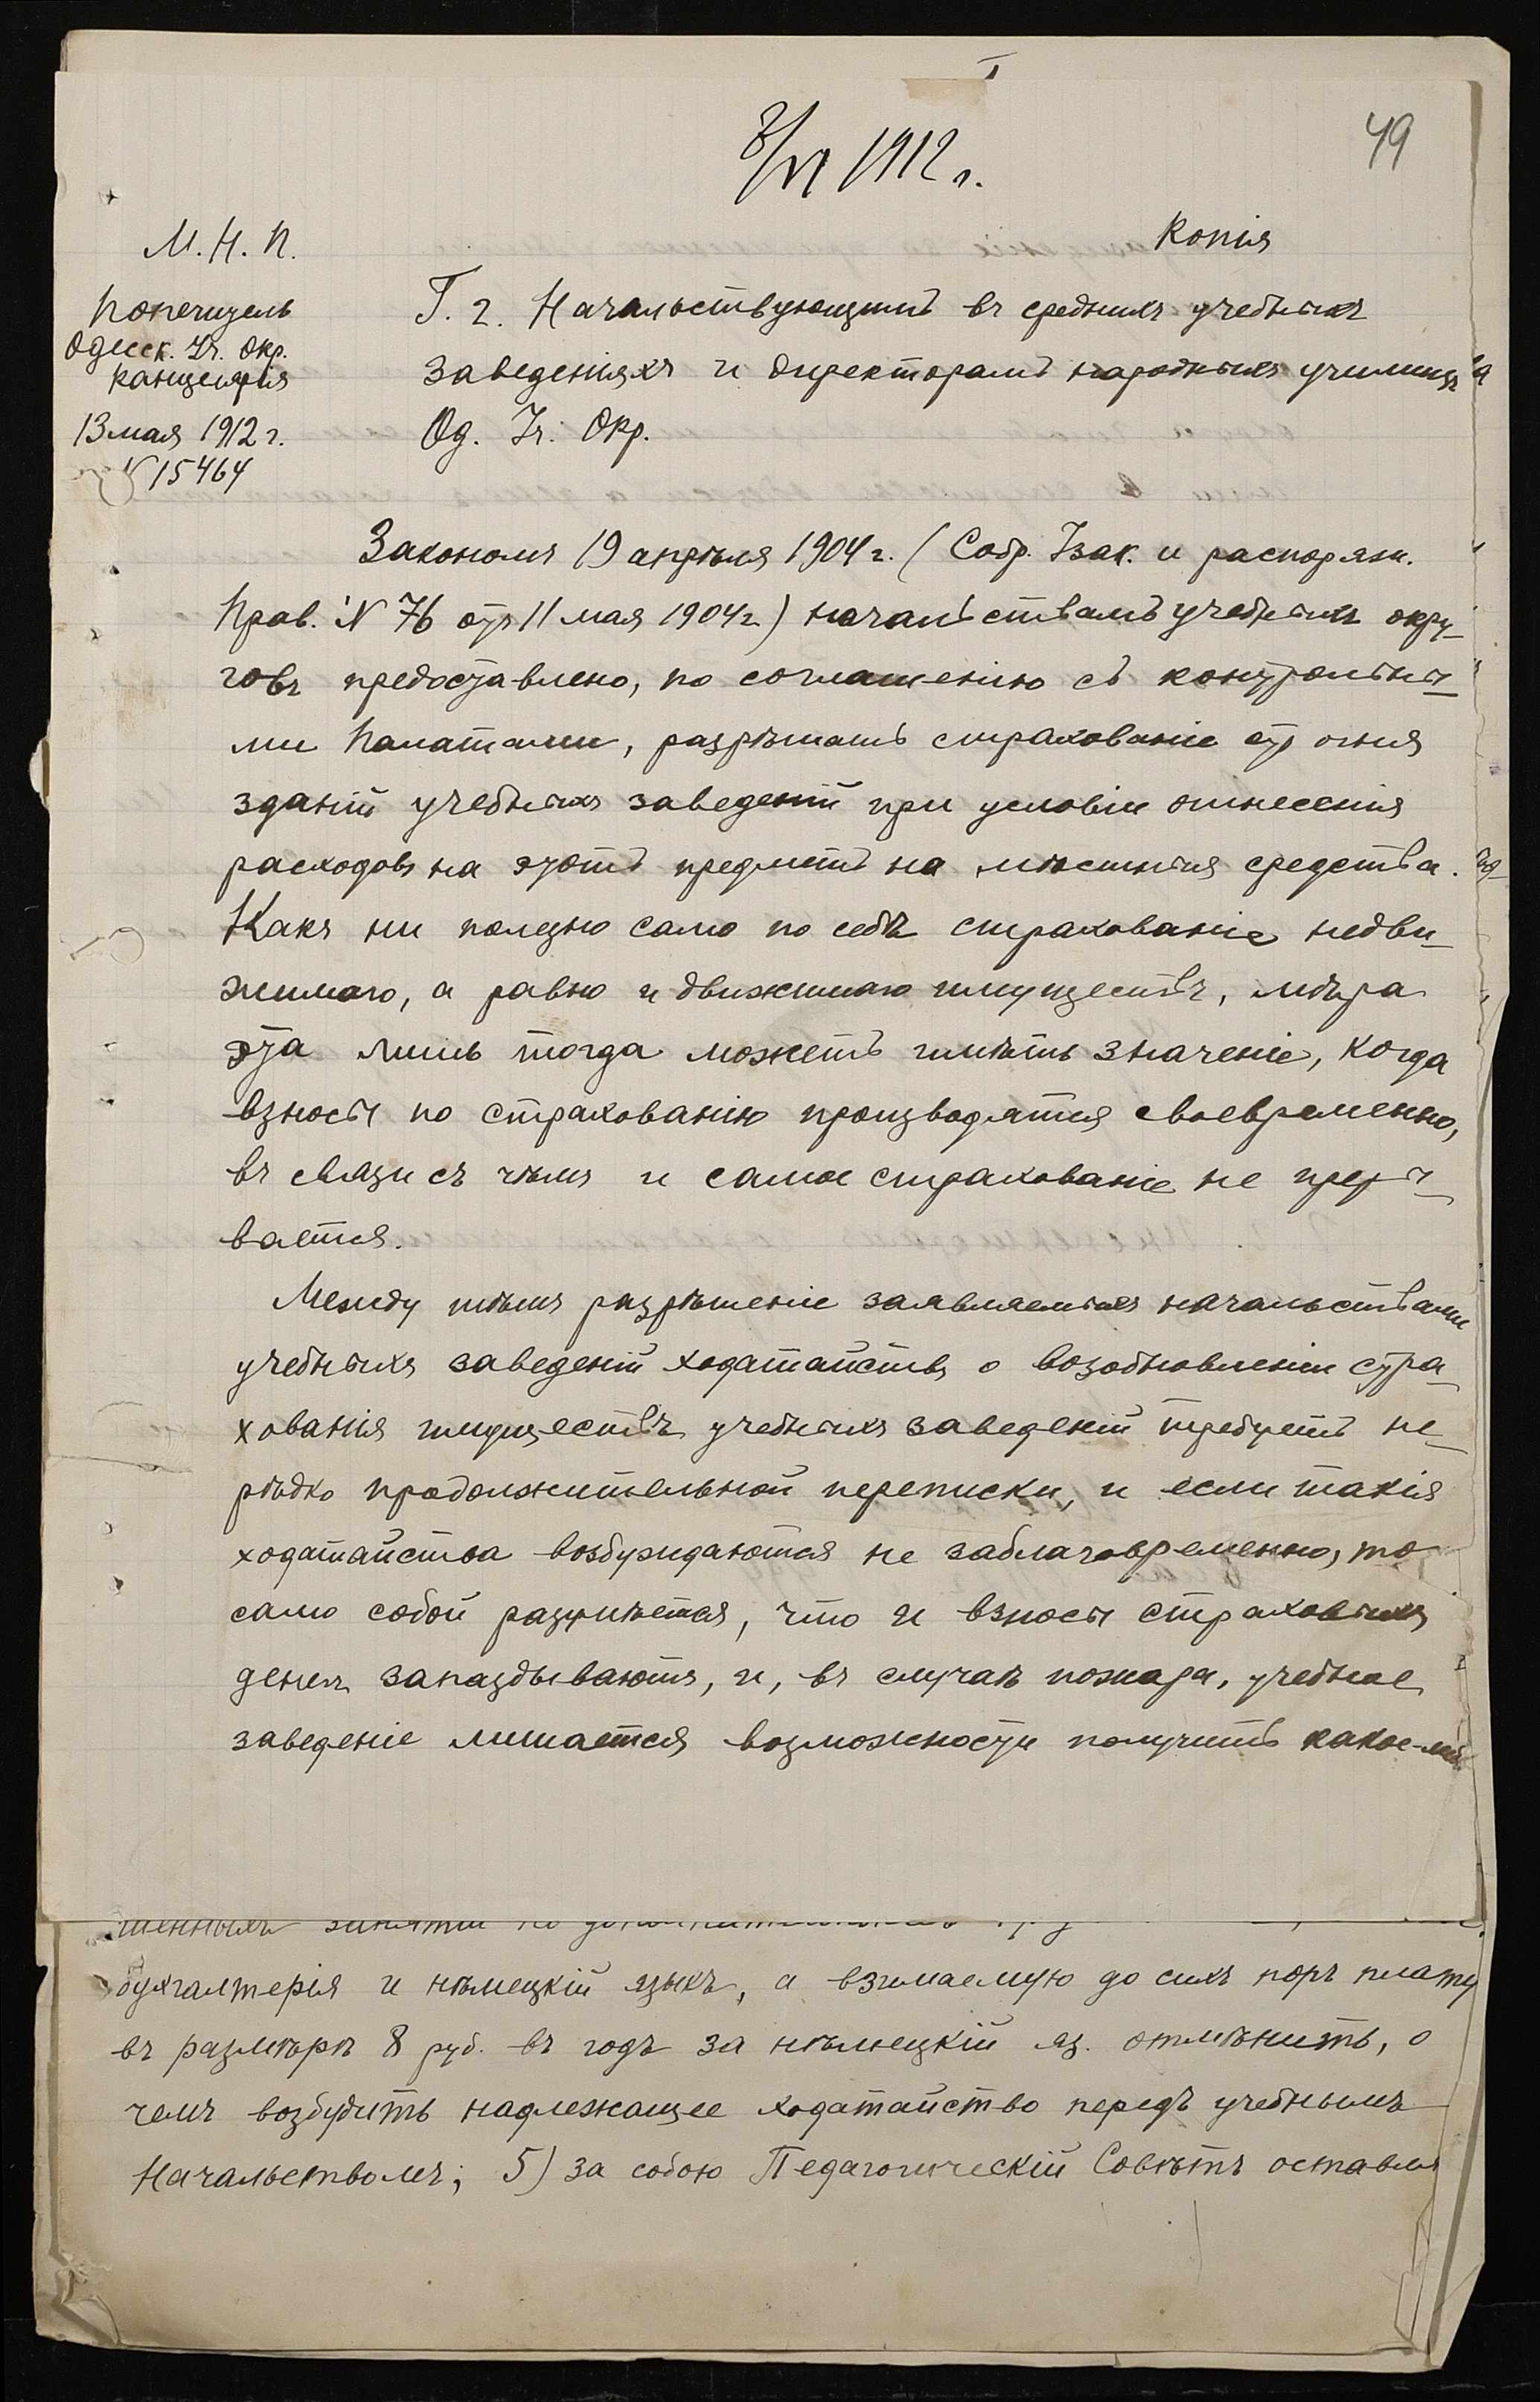 49
8/VI 1912 г.
Копія
М. Н. П.
Попечитель
Одесск. Уч. Окр.
Канцелярія
13 мая 1912 г.
№ 15464
Г. г. Начальствующимъ въ среднихъ учебныхъ
заведеніяхъ и директорамъ народныхъ училищъ
Од. Уч. Окр.
Закономъ 19 апрѣля 1904 г. (Собр. Узак. и распоряж.
Прав. № 76 отъ 11 мая 1904 г.) начальствамъ учебныхъ окру-
говъ предоставлено, по соглашенію съ контрольны-
ми Палатами, разрѣшать страхованіе отъ огня
зданій учебныхъ заведеній при условіи отнесенія
расходовъ на этотъ предметъ на мѣстныя средства.
Какъ ни полезно само по себѣ страхованіе недви-
жимаго, а равно и движимаго имуществъ, мѣра
эта лишь тогда можетъ имѣть значеніе, когда
взносы по страхованію производятся своевременно,
въ связи съ чѣмъ и самое страхованіе не преры-
вается.
Между тѣмъ разрѣшеніе заявляемыхъ начальствами
учебныхъ заведеній ходатайствъ о возобновленіи стра-
хованія имуществъ учебныхъ заведеній требуетъ не-
рѣдко продолжительной переписки, и если такія
ходатайства возбуждаются не заблаговременно, то
само собой разумѣется, что и взносы страховыхъ
денегъ запаздываютъ, и, въ случаѣ пожара, учебное
заведеніе лишается возможности получить какое-либо
шенныхъ занятій по
бухгалтерія и нѣмецкій языкъ, а взимаемую до сихъ поръ плату
въ размѣрѣ 8 руб. въ годъ за нѣмецкій яз. отмѣнить, о
чемъ возбудить надлежащее ходатайство передъ учебнымъ
Начальствомъ; 5) за собою Педагогическій Совѣтъ оставля